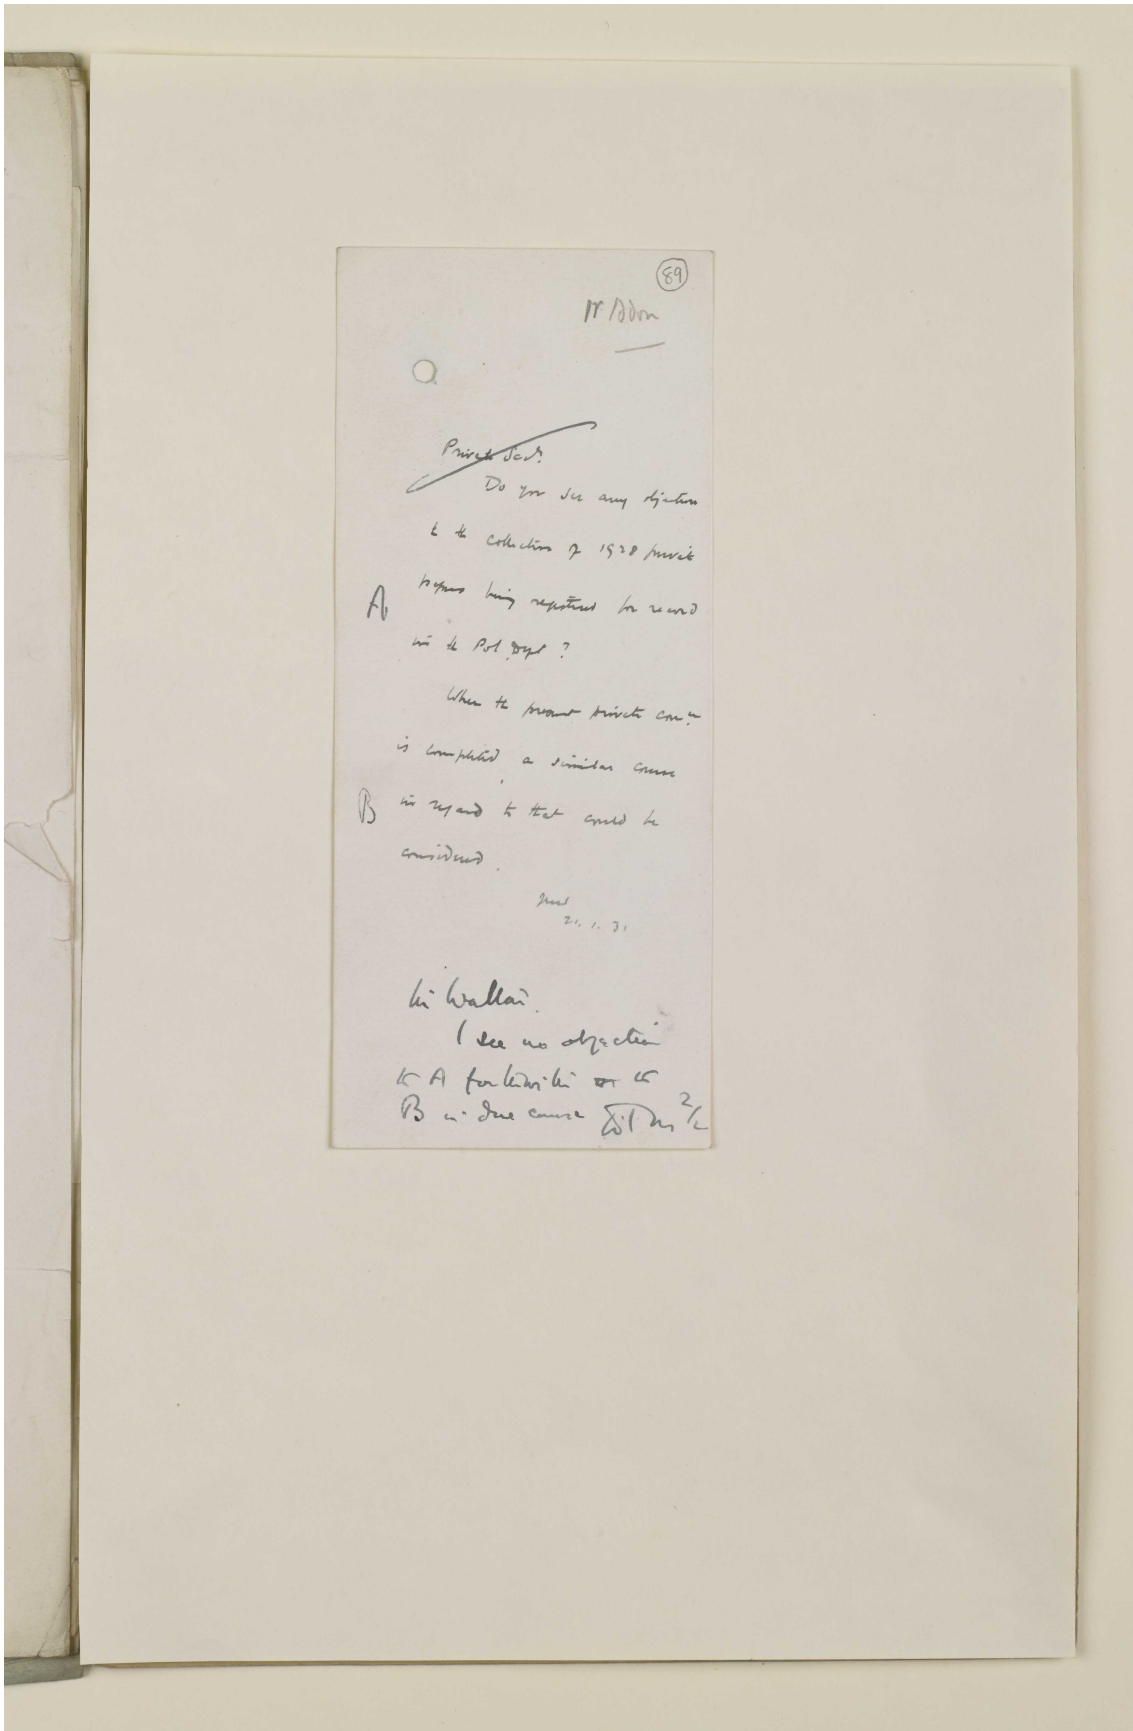 89
Private Secy.
Do you see any objection
to the collection of 1928 private
papers being registered for record
A
in the Pol. Dept ?
When the present private corrce
is completed a similar course
B
in regard to that could be
considered.
21. 1. 31
Mr Walton.
I see no objection
to A forthwith or to
B in due course
2/2